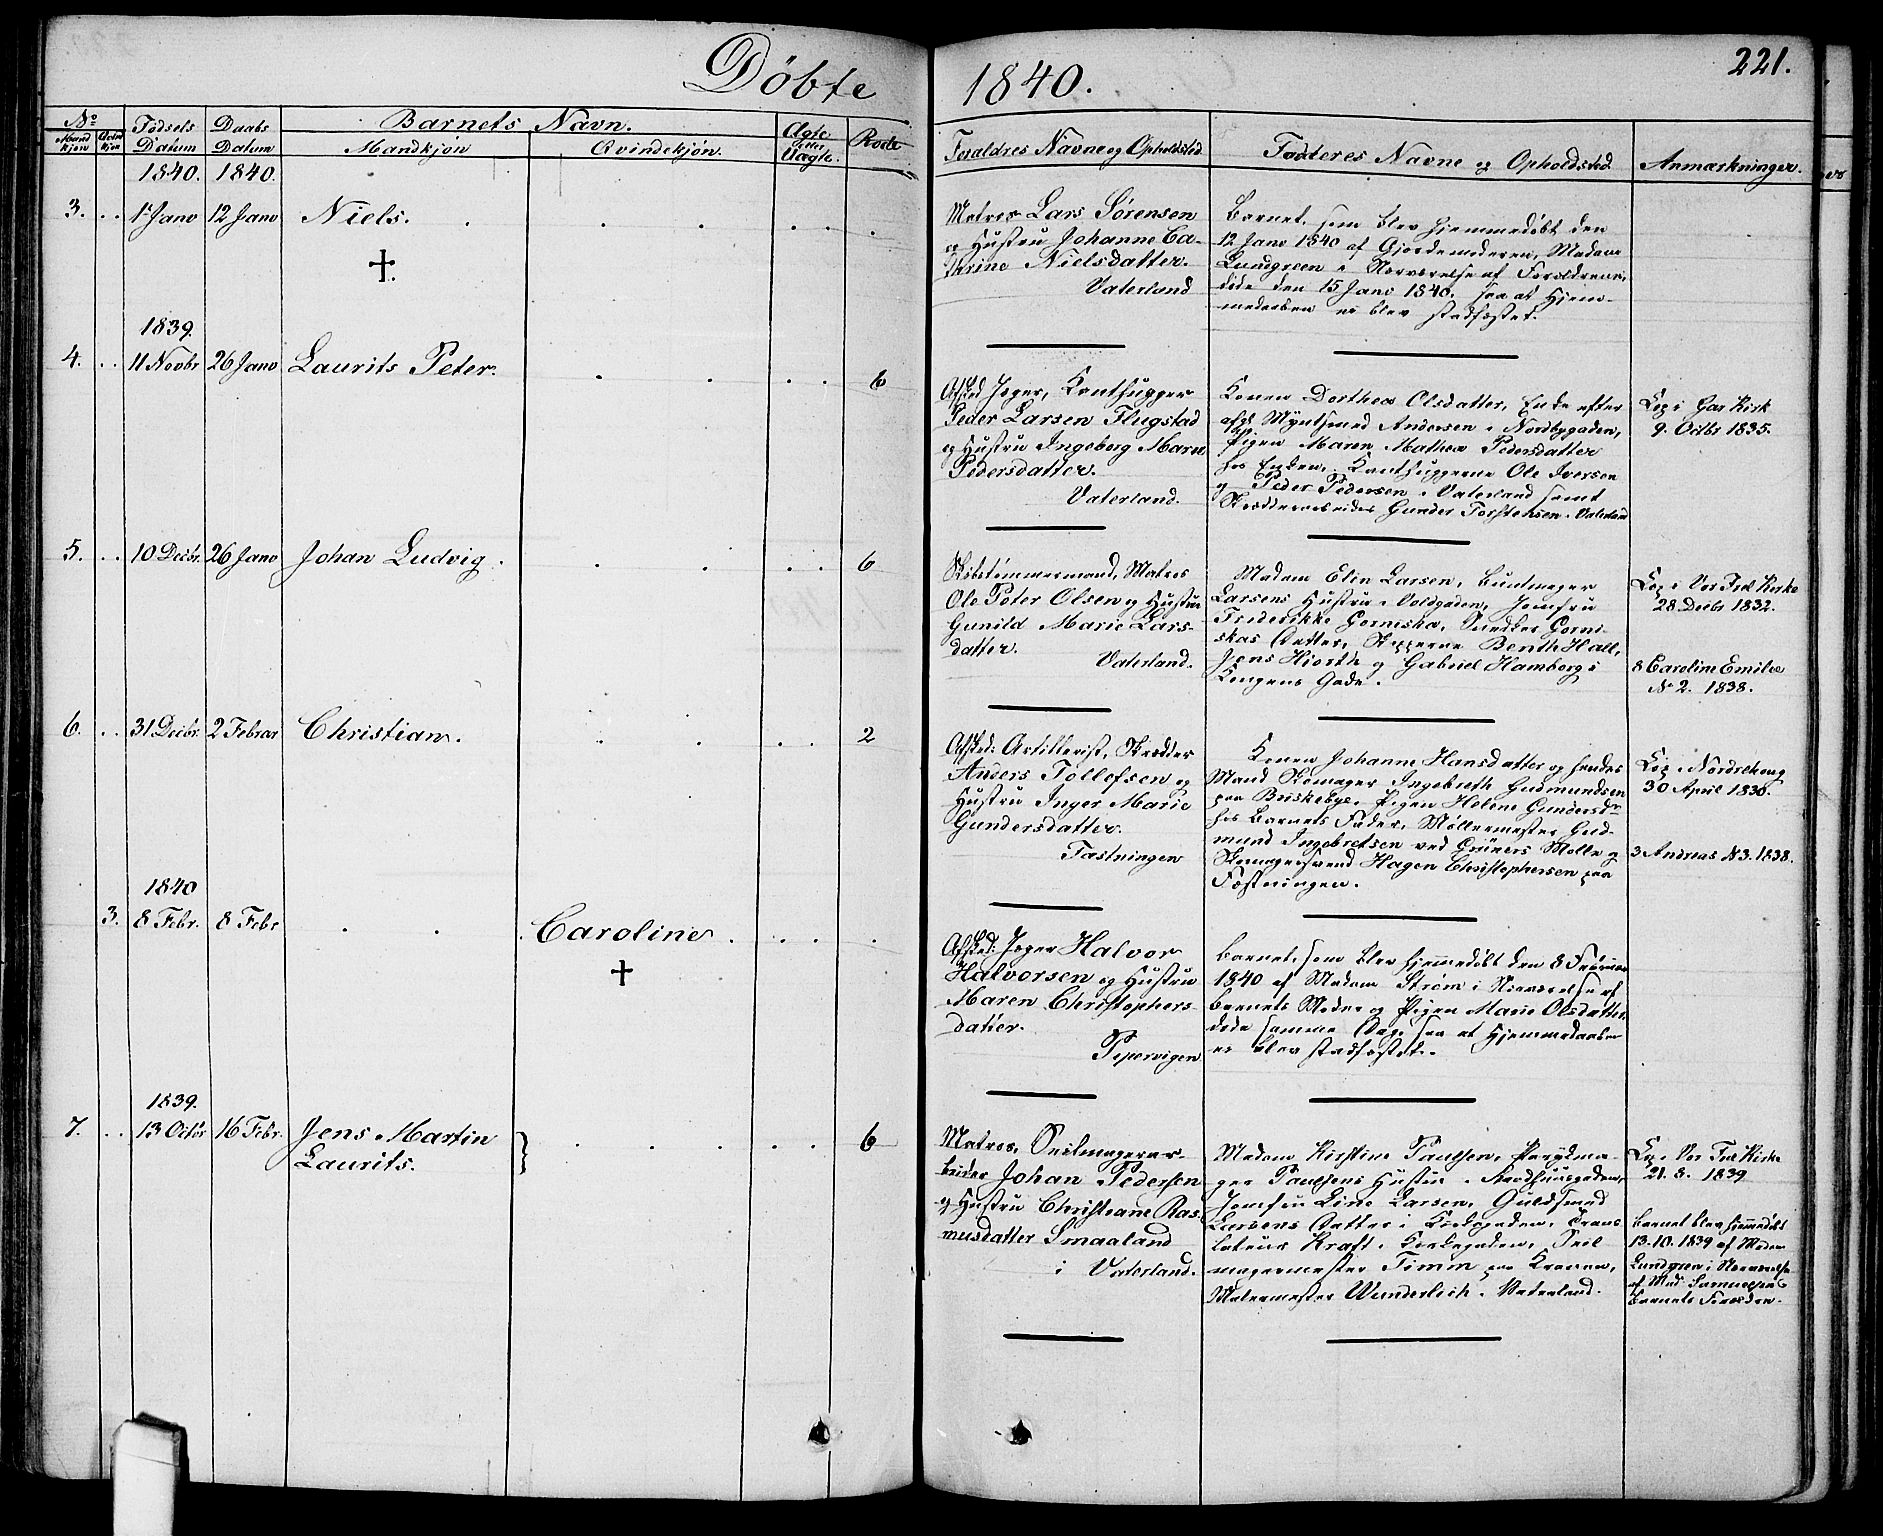 Döbte 1840.
221.
No
Mand kjön
Qvin kjön
Födsels Datum
Daabs Datum
Barnets Navn.
Mandkjön
Qvindekjön.
Ægte eller Uægte.
Rode
Foraldres Navne og Opholdsted
Fadderes Navne og Opholdsted
Anmærkninger.
1840. 1840.
3. 1' Janv 12 Janv Niels.
Matros Lars Sörensen
og Hustru Johanne Ca-
thrine Nielsdatter.
Vaterland
Barnet, som blev hjemmedöbt den
12 Janv 1840 af Gjordemoderen, Madam
Lundgreen i Nærværelse af Forældrene,
döde den 15 Janv 1840, saa at Hjem-
medaaben ei blev stadfæstet.
1839.
4. 11 Novbr 26 Janv Laurits Peter. 6
Afsked Jæger, Kanthugger
Peder Larsen Flugstad
og Hustru Ingeborg Marie
Pedersdatter.
Vaterland.
Konen Dorthea Olsdatter, Enke efter
afg. Myntsmed Andersen i Nordbygaden,
Pigen Maren Mathea Pedersdatter
hos Enken, Kanthuggerne Ole Iversen
og Peder Pedersen i Vaterland samt
Gunder Torstensen i Vaterland
Cop i Gar Kirk
9. Octbr 1835.
5. 10 Decbr. 26 Janv Johan Ludvig. 6
Skibstömmermand, Matros
Ole Peter Olsen og Hustru
Gunild Marie Lars-
datter.
Vaterland.
Madam Elin Larsen, Buntmager
Larsens Hustru i Voldgaden, Jomfru
Friderikke Gorniska, Gorni-
skas Datter, Skipperne Benth Hall,
Jens Hiorth og Gabriel Hamborg i
Kongens Gade.
Cop i Vor Frel Kirke
28 Decbr 1832.
8 Caroline Emilie
No 2. 1838.
6. 31 Decbr. 2 Februar Christian. 2
Afsked: Artillerist, Skrædder
Anders Tollefsen og
Hustru Inger Marie
Gundersdatter.
Fæstningen
Konen Johanne Hansdatter og hendes
Mand Skomager Ingebreth Gudmundsen
paa Briskebye, Pigen Helene Gundersdr
hos Barnets Fader, Möllermester Gud-
mund Ingebretsen ved Grüners Mölle og
Skomagersvend Hagen Christophersen paa
Fæstningen.
Cop i Nordrehoug
30 April 1836.
3 Andreas No 3. 1838.
1840
3. 8 Febr. 8 Febr Caroline.
Afsked: Jæger Halvor
Halvorsen og Hustru
Maren Christophers-
datter.
Pipervigen
Barnet, som blev hjemmedöbt den 8 Februar
1840 af Madam Ström i Nærværelse af
Barnets Moder og Pigen Marie Olsdatter,
döde samme Dag, saa at Hjemmedaaben
ei blev stadfæstet.
1839.
7. 13 Octbr 16 Febr. Jens Martin
Laurits. 6
Matros, Seilmagerar-
beider Johan Pedersen
og Hustru Christiane Ras-
musdatter Smaaland
i Vaterland.
Madam Kirstine Paulsen,
Paulsens Hustru i Raadhuusgaden,
Jomfru Line Larsen, Guldsmed
Larsens Datter i Kirkegaden, Trans
lateur Kraft i Kirkegaden, Seil
magermester Timm paa Kranen,
Malermester Wunderlich i Vaterland.
Cop i Vor Frel Kirke
21. 8. 1839
Barnet blev hjemmedöbt
13.10.1839 af Madam
Lundgren i Nærværelse
af Mad. Samuelsen &
Barnets Forældre.